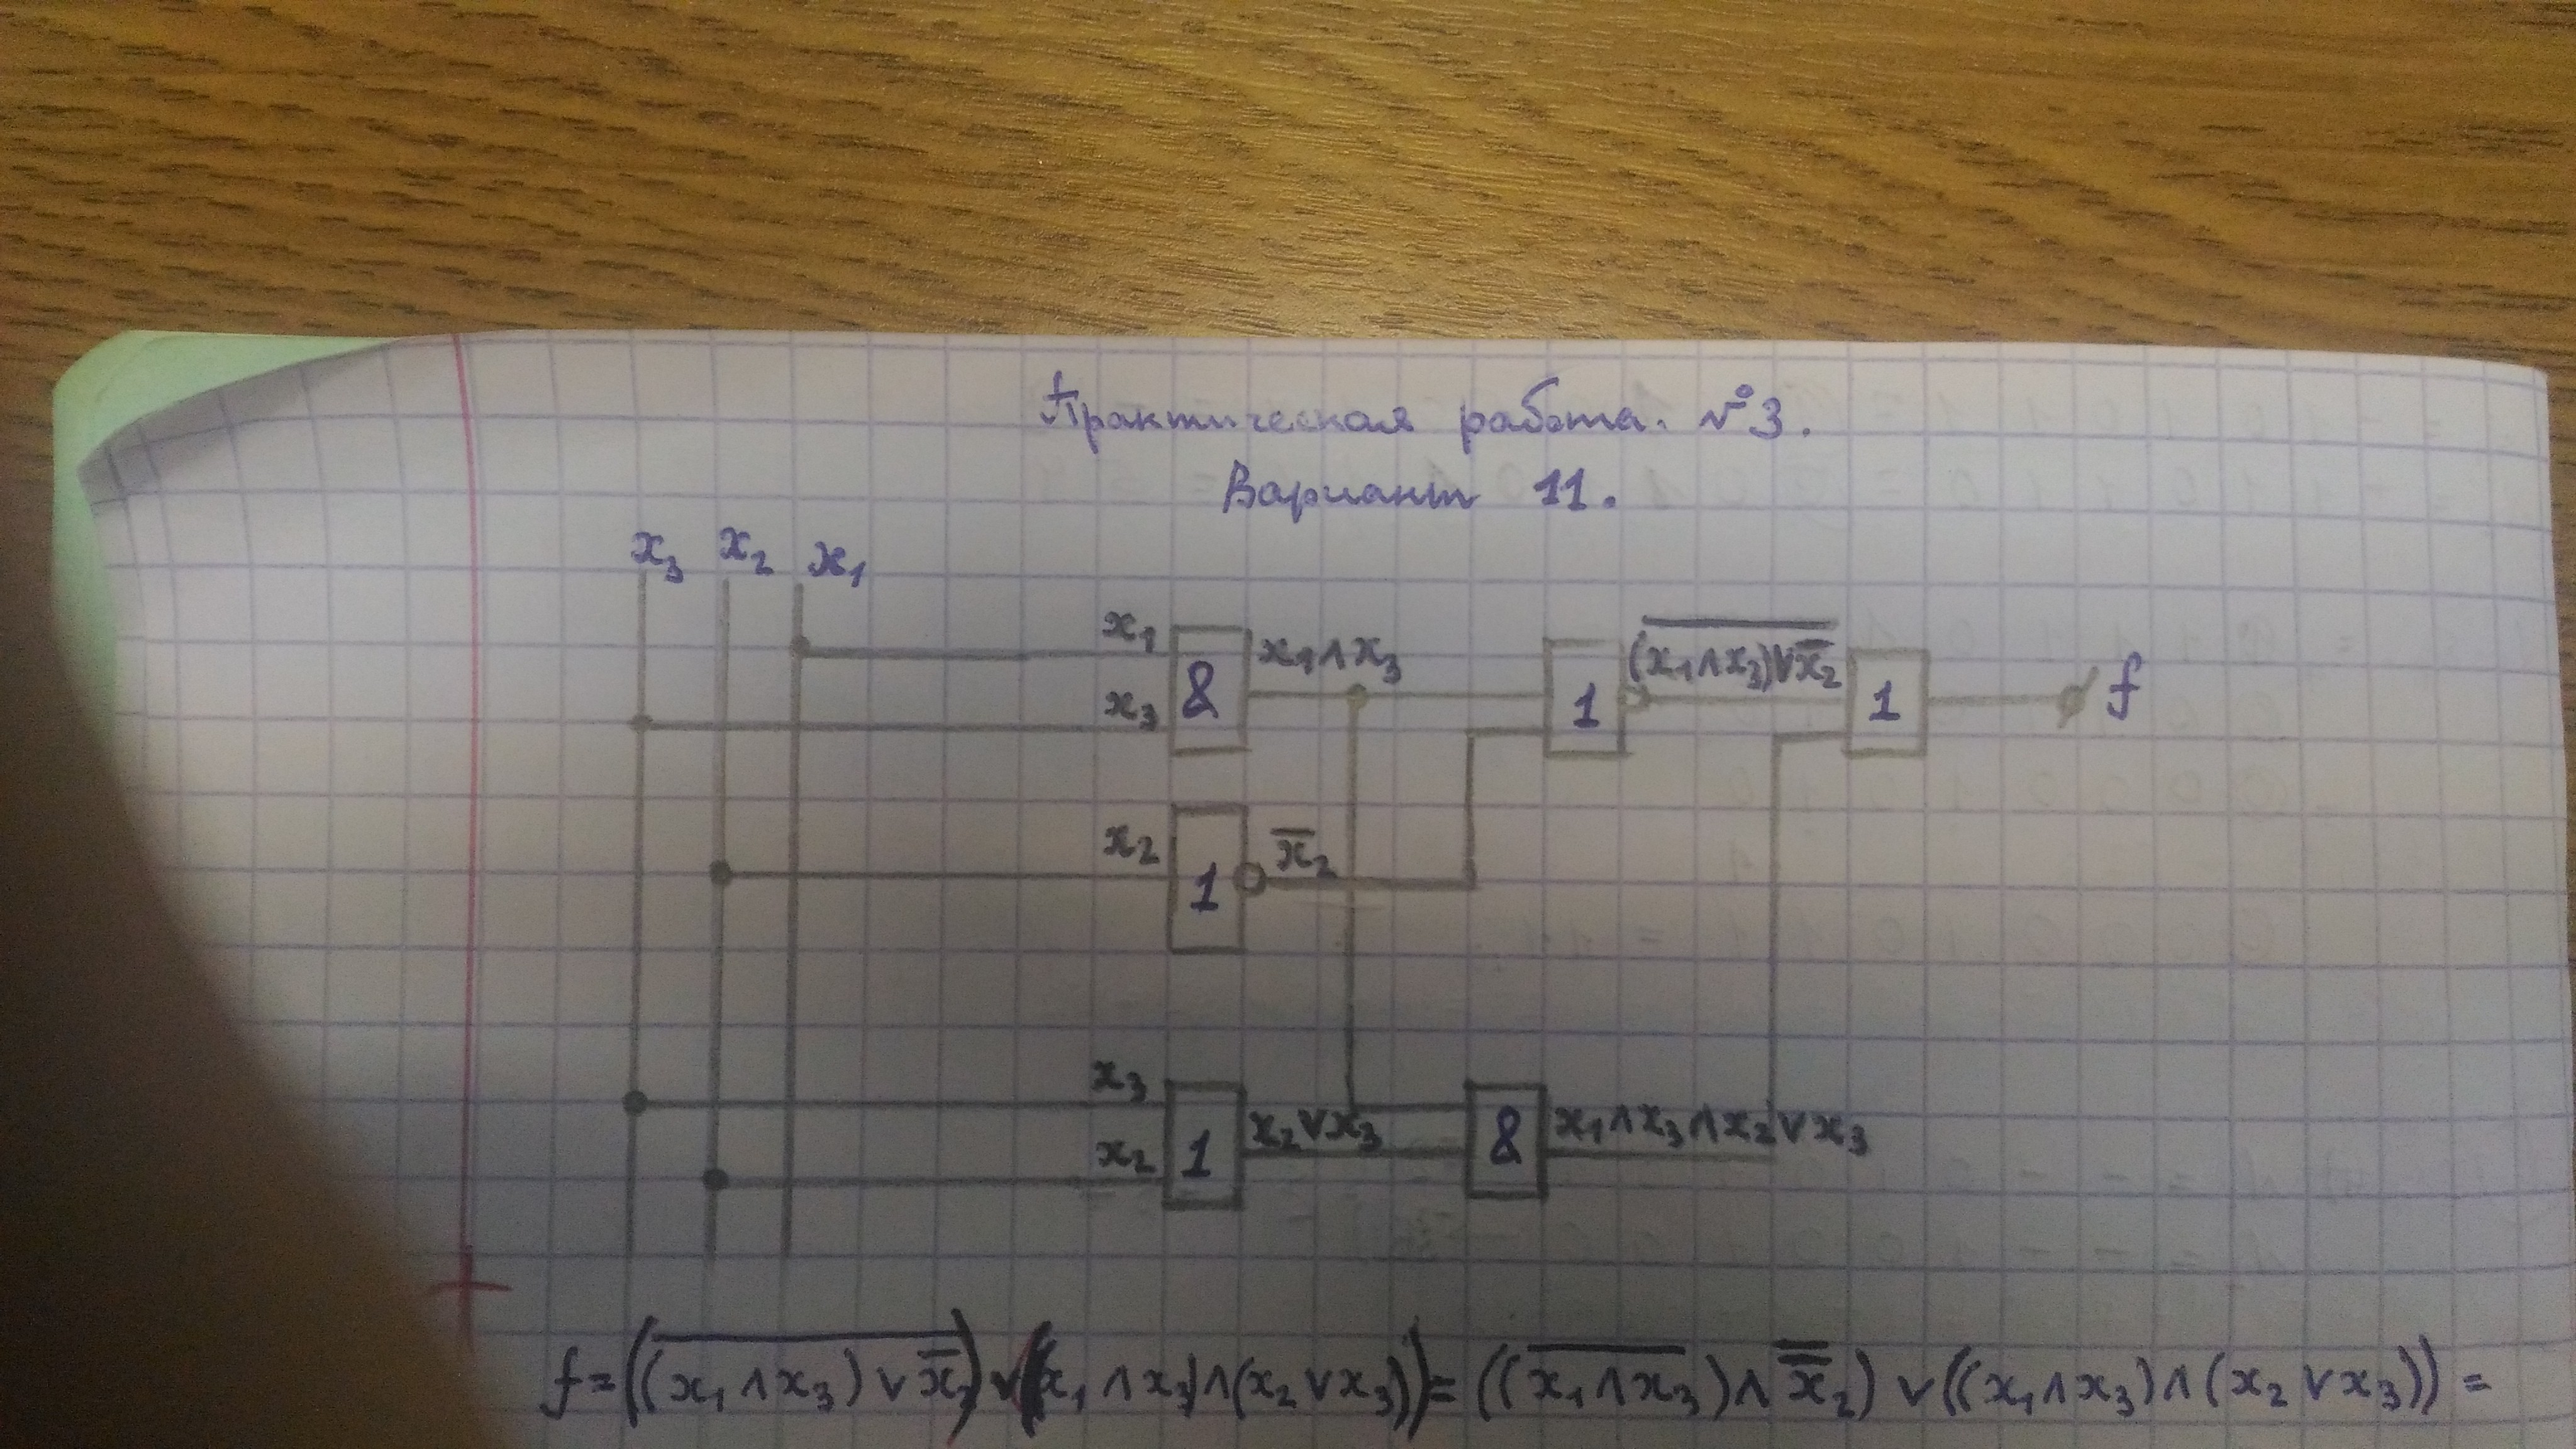 Практическая работа. №3.
Вариант 11.
x₃ x₂ x₁
x₁ & x₁∧x₃ 1 \overline{(x₁∧x₃)∨x̅₂} 1 f
x₃
x₂ 1 x̅₂
x₃ 1 x₂∨x₃ & x₁∧x₃∧x₂∨x₃
x₂
f=(\overline{(x₁∧x₃)∨x̅₂})∨(x₁∧x₃)∧(x₂∨x₃))=((\overline{x₁∧x₃})∧\overline{\overline{x}}₂)∨((x₁∧x₃)∧(x₂∨x₃))=